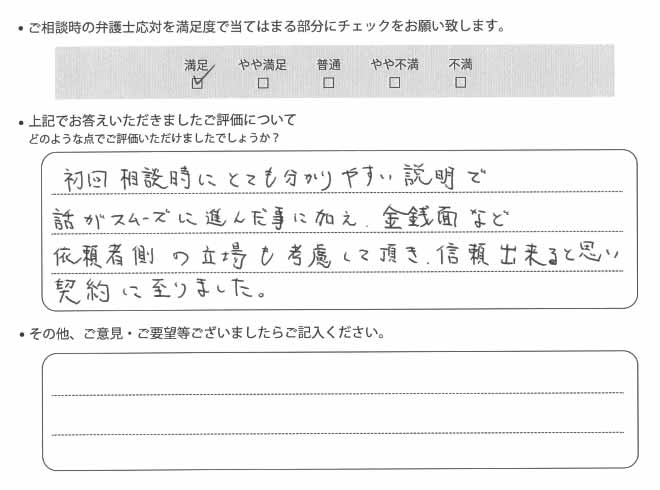 • ご相談時の弁護士応対を満足度で当てはまる部分にチェックをお願い致します。
満足 やや満足 普通 やや不満 不満
• 上記でお答えいただきましたご評価について
どのような点でご評価いただけましたでしょうか？
初回相談時にとても分かりやすい説明で
話がスムーズに進んだ事に加え、金銭面など
依頼者側の立場も考慮して頂き、信頼出来ると思い
契約に至りました。
• その他、ご意見・ご要望等ございましたらご記入ください。